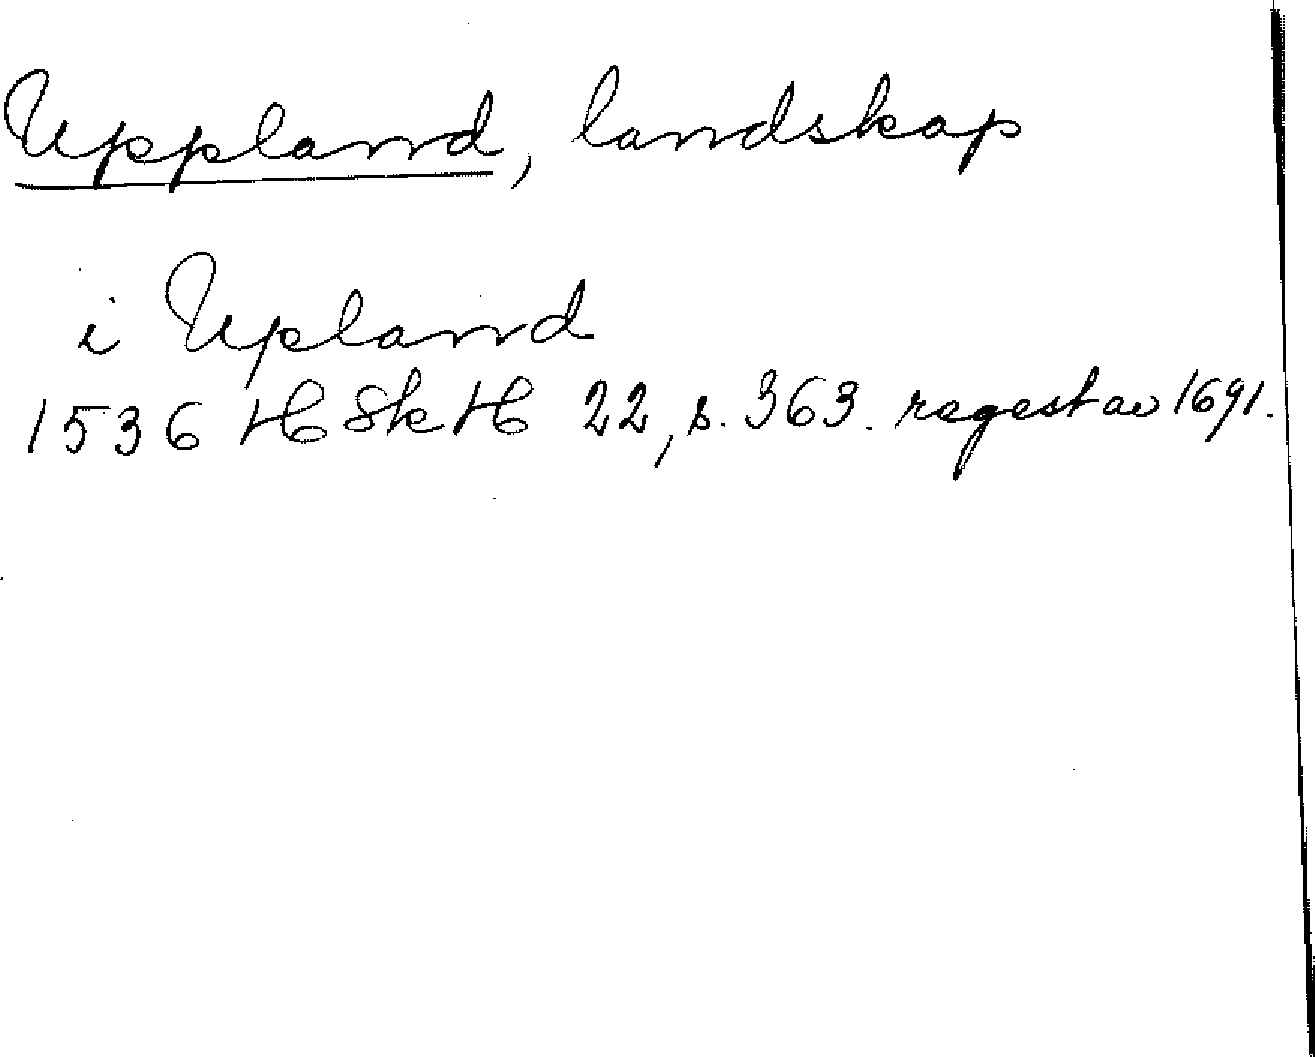 Uppland, landskap
i Upland
1536 HSkH 22, s. 363. regest av 1691.